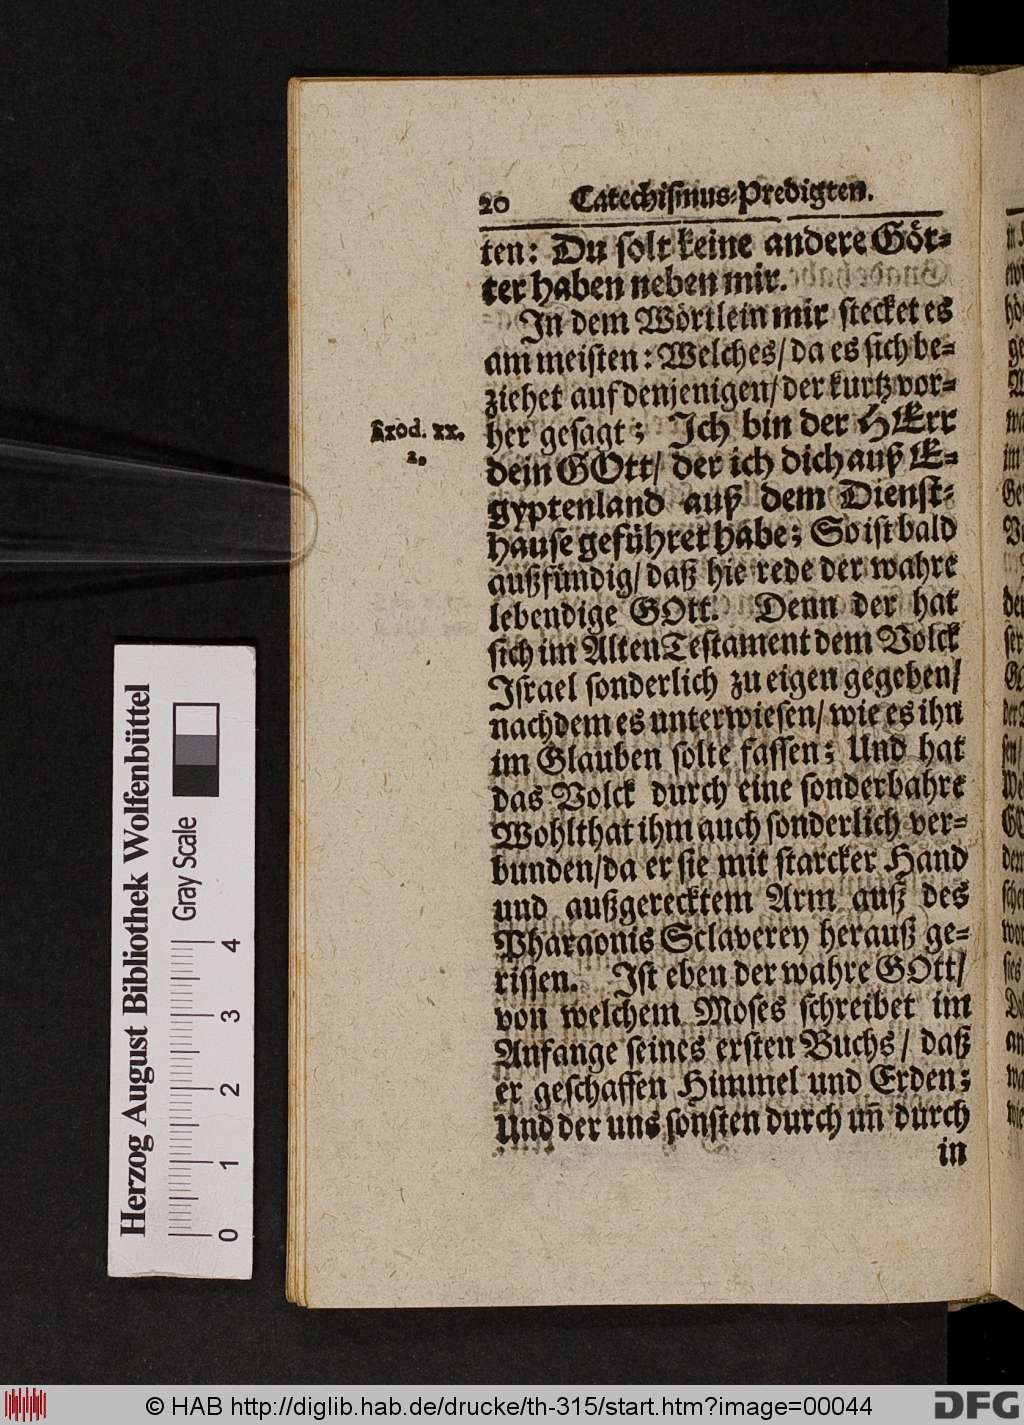 20 Catechismus-Predigten.
ten: Du solt keine andere Göt-
ter haben neben mir.
In dem Wörtlein mir stecket es
am meisten: Welches/ da es sich be-
ziehet auf denjenigen/ der kurtz vor-
her gesagt; Ich bin der HErr
Exod. xx.
2.
dein GOtt/ der ich dich auß E-
gyptenland auß dem Dienst-
hause geführet habe; So ist bald
außfündig/ daß hie rede der wahre
lebendige GOtt. Denn der hat
sich im Alten Testament dem Volck
Israel sonderlich zu eigen gegeben/
nachdem es unterwiesen/ wie es ihn
im Glauben solte fassen; Und hat
das Volck durch eine sonderbahre
Wohlthat ihm auch sonderlich ver-
bunden/ da er sie mit starcker Hand
und außgerecktem Arm auß des
Pharaonis Sclaverey herauß ge-
rissen. Ist eben der wahre GOtt/
von welchem Moses schreibet im
Anfange seines ersten Buchs / daß
er geschaffen Himmel und Erden;
Und der uns sonsten durch uñ durch
in
Herzog August Bibliothek Wolfenbüttel
Gray Scale
0 1 2 3 4
© HAB http://diglib.hab.de/drucke/th-315/start.htm?image=00044
DFG